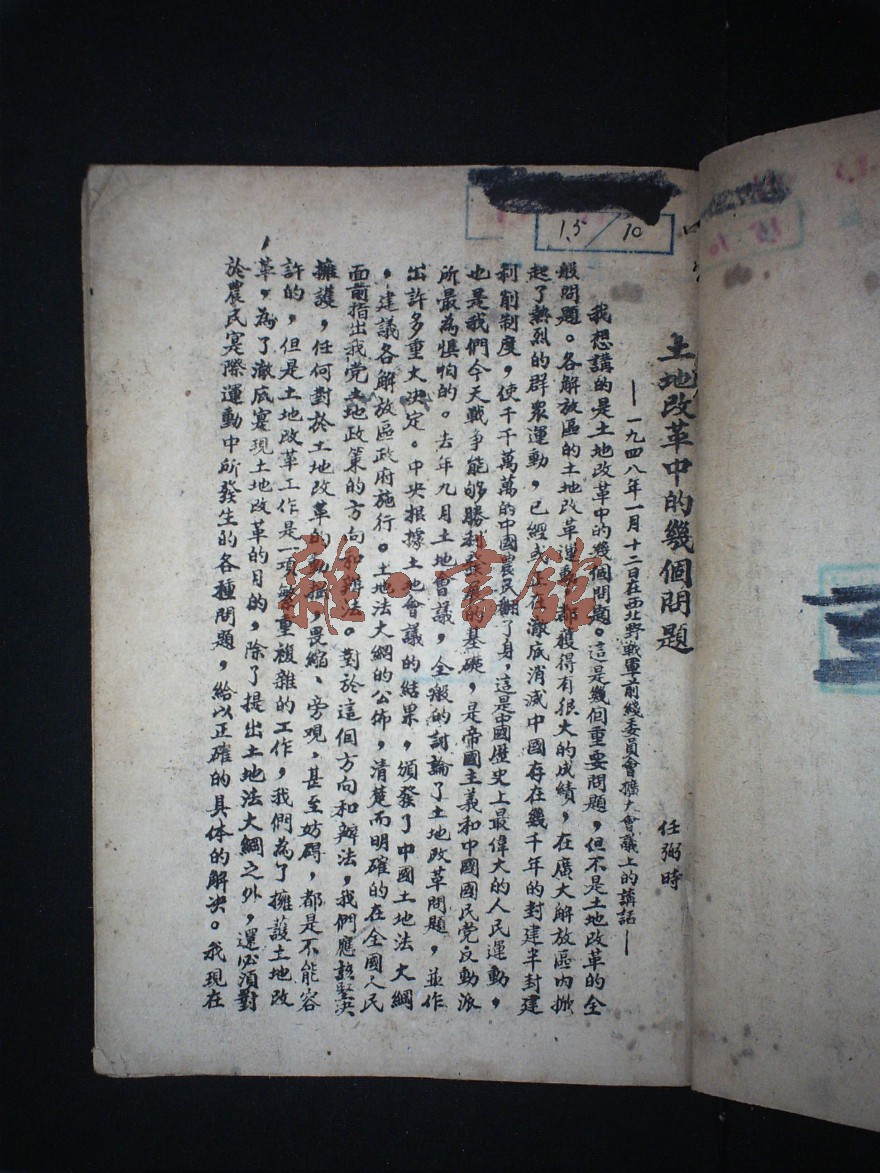 15/10
土地改革中的幾個問題
任弼時
——一九四八年一月十二日在西北野戰軍前綫委員會擴大會議上的講話——
我想講的是土地改革中的幾個問題。這是幾個重要問題,但不是土地改革的全
般問題。各解放區的土地改革運動,都獲得有很大的成績,在廣大解放區內掀
起了熱烈的群衆運動,已經或正在澈底消滅中國存在幾千年的封建半封建
剝削制度,使千千萬萬的中國農民翻了身,這是中國歷史上最偉大的人民運動,
也是我們今天戰爭能够勝利發展的基礎,是帝國主義和中國國民党反動派
所最為惧怕的。去年九月土地會議,全般的討論了土地改革問題,並作
出許多重大决定。中央根據土地會議的結果,頒發了中國土地法大綱
,建議各解放區政府施行。土地法大綱的公佈,清楚而明確的在全國人民
面前指出我党土地政策的方向和辦法。對於這個方向和辦法,我們應該堅决
擁護,任何對於土地改革的動搖,畏縮、旁观,甚至妨碍,都是不能容
許的,但是土地改革工作是一項繁重複雜的工作,我們為了擁護土地改
革,為了澈底實現土地改革的目的,除了提出土地法大綱之外,還必須對
於農民實際運動中所發生的各種問題,給以正確的具体的解决。我現在
雜·書館
15 10